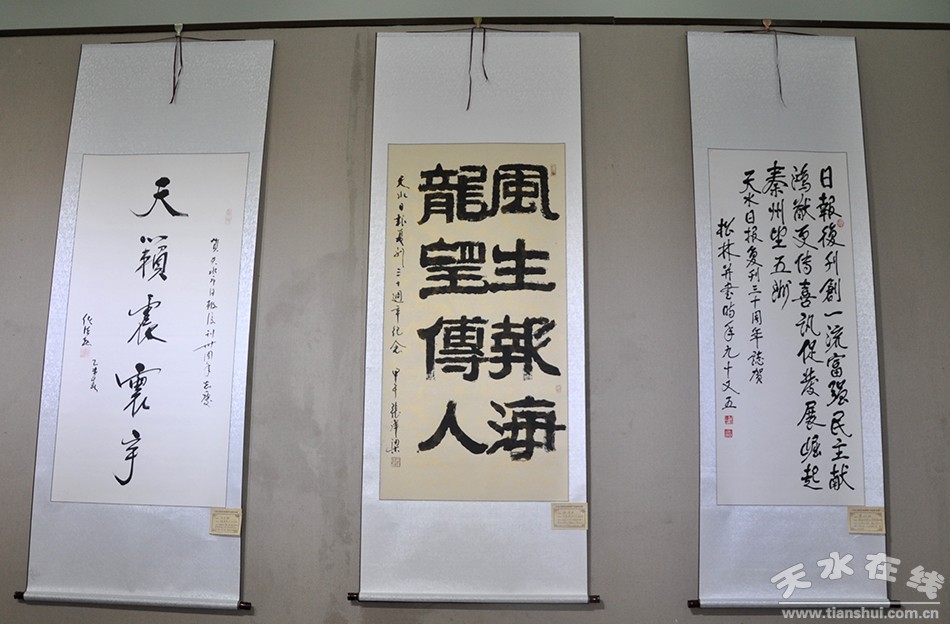 天籟震寰宇
賀天水日報復刊卅周年志慶
乙未
風生報海
龍望傳人
天水日報复刊三十週年纪念
甲午
日報復刋創一流富强民主献
鴻猷更传喜訊促發展崛起
秦州望五洲
天水日报复刊三十周年誌贺
松林并書时年九十又五
天水在线
www.tianshui.com.cn